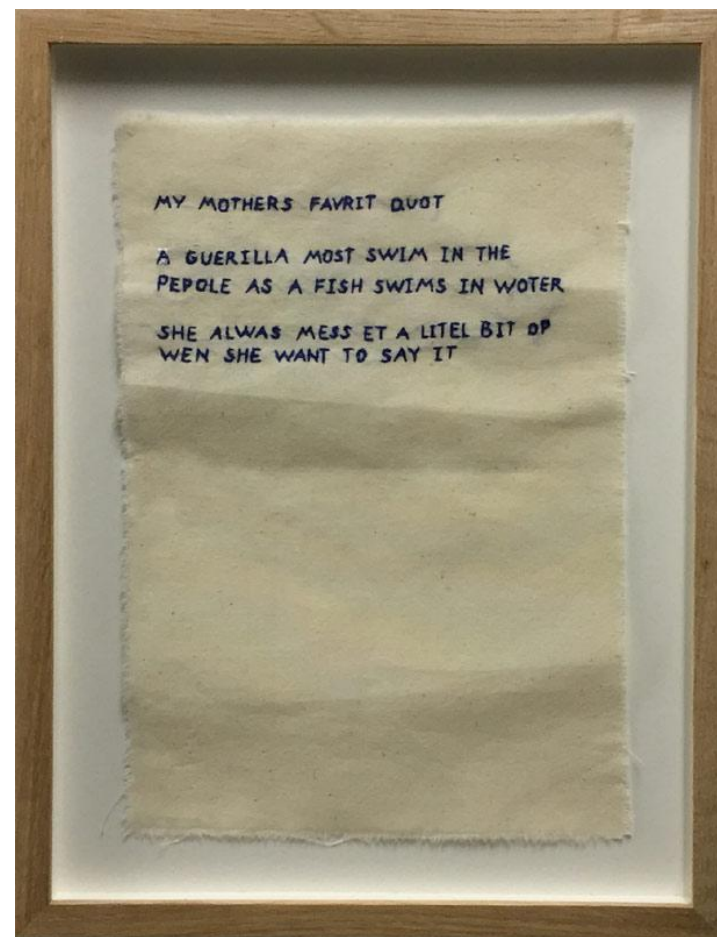 MY MOTHERS FAVRIT QUOT
A GUERILLA MOST SWIM IN THE
PEPOLE AS A FISH SWIMS IN WOTER
SHE ALWAS MESS ET A LITEL BIT OP
WEN SHE WANT TO SAY IT